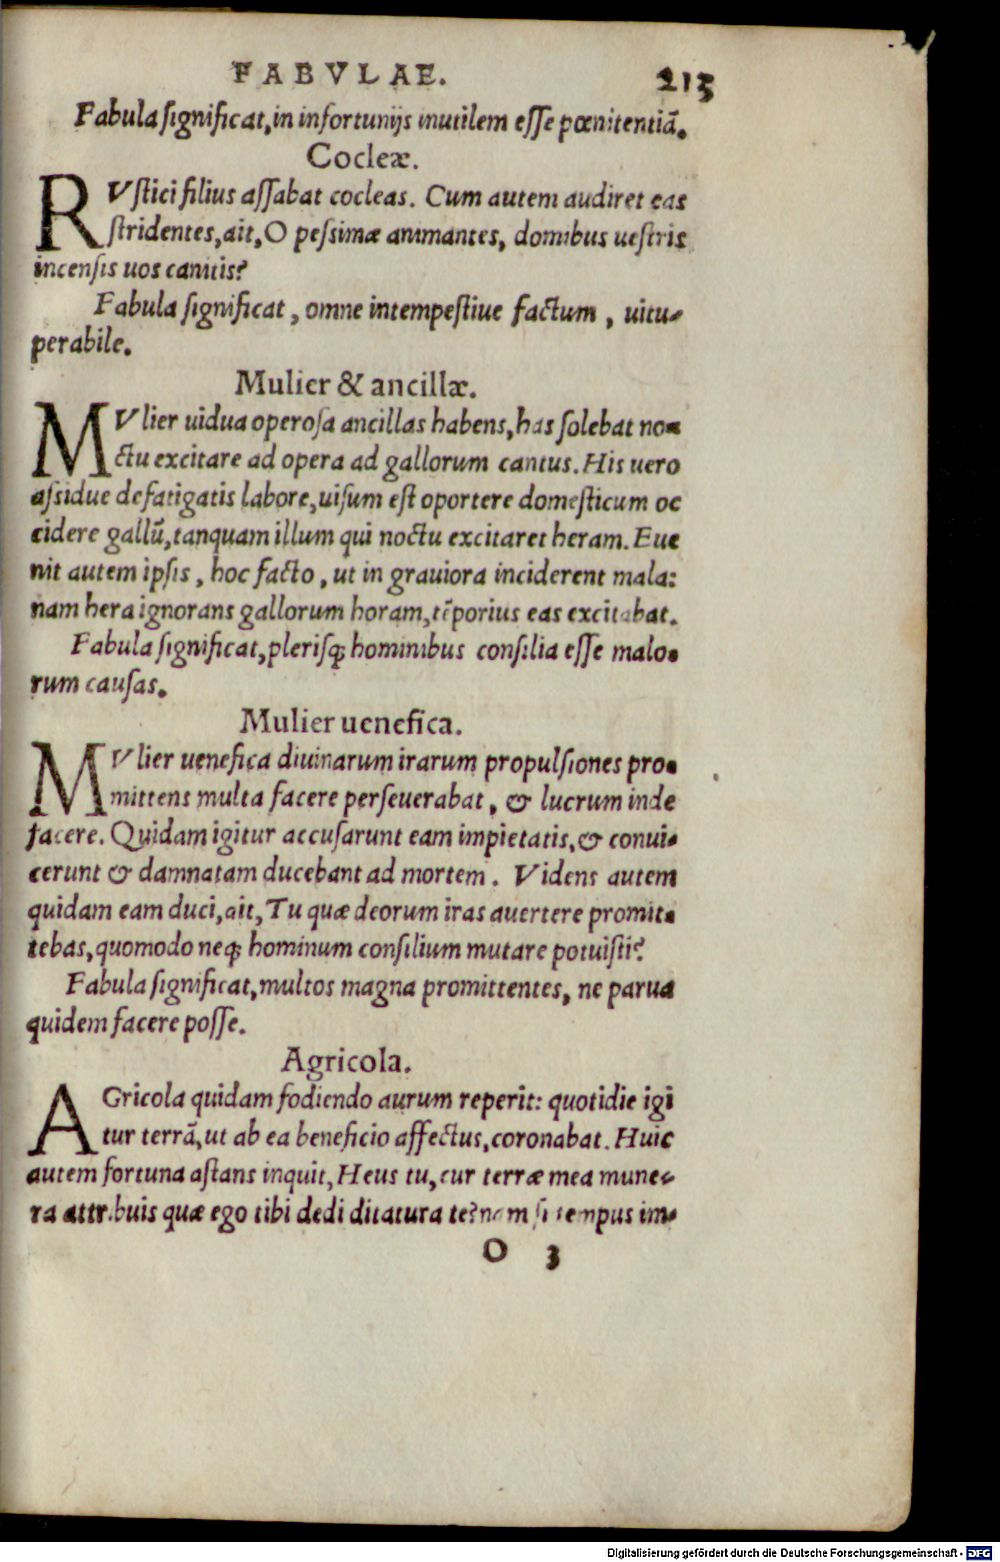 FABVLAE. 213
Fabula ſignificat, in infortunijs inutilem eſſe pœnitentiā.
Cocleæ.
RVſtici filius aſſabat cocleas. Cum autem audiret eas
ſtridentes, ait, O peſsimæ animantes, domibus ueſtris
incenſis uos canitis?
Fabula ſignificat, omne intempeſtiue factum, uitu-
perabile.
Mulier & ancillæ.
MVlier uidua operoſa ancillas habens, has ſolebat no-
ctu excitare ad opera ad gallorum cantus. His uero
aſsidue defatigatis labore, uiſum eſt oportere domeſticum oc
cidere gallū, tanquam illum qui noctu excitaret heram. Eue
nit autem ipſis, hoc facto, ut in grauiora inciderent mala:
nam hera ignorans gallorum horam, tēporius eas excitabat.
Fabula ſignificat, pleriſq; hominibus conſilia eſſe malo-
rum cauſas.
Mulier uenefica.
MVlier uenefica diuinarum irarum propulſiones pro-
mittens multa facere perſeuerabat, & lucrum inde
facere. Quidam igitur accuſarunt eam impietatis, & conui-
cerunt & damnatam ducebant ad mortem. Videns autem
quidam eam duci, ait, Tu quæ deorum iras auertere promit-
tebas, quomodo neq; hominum conſilium mutare potuiſti?
Fabula ſignificat, multos magna promittentes, ne parua
quidem facere poſſe.
Agricola.
AGricola quidam fodiendo aurum reperit: quotidie igi
tur terrā, ut ab ea beneficio affectus, coronabat. Huic
autem fortuna aſtans inquit, Heus tu, cur terræ mea mune-
ra attribuis quæ ego tibi dedi ditatura te? nam ſi tempus im-
O 3
Digitalisierung gefördert durch die Deutsche Forschungsgemeinschaft - DFG